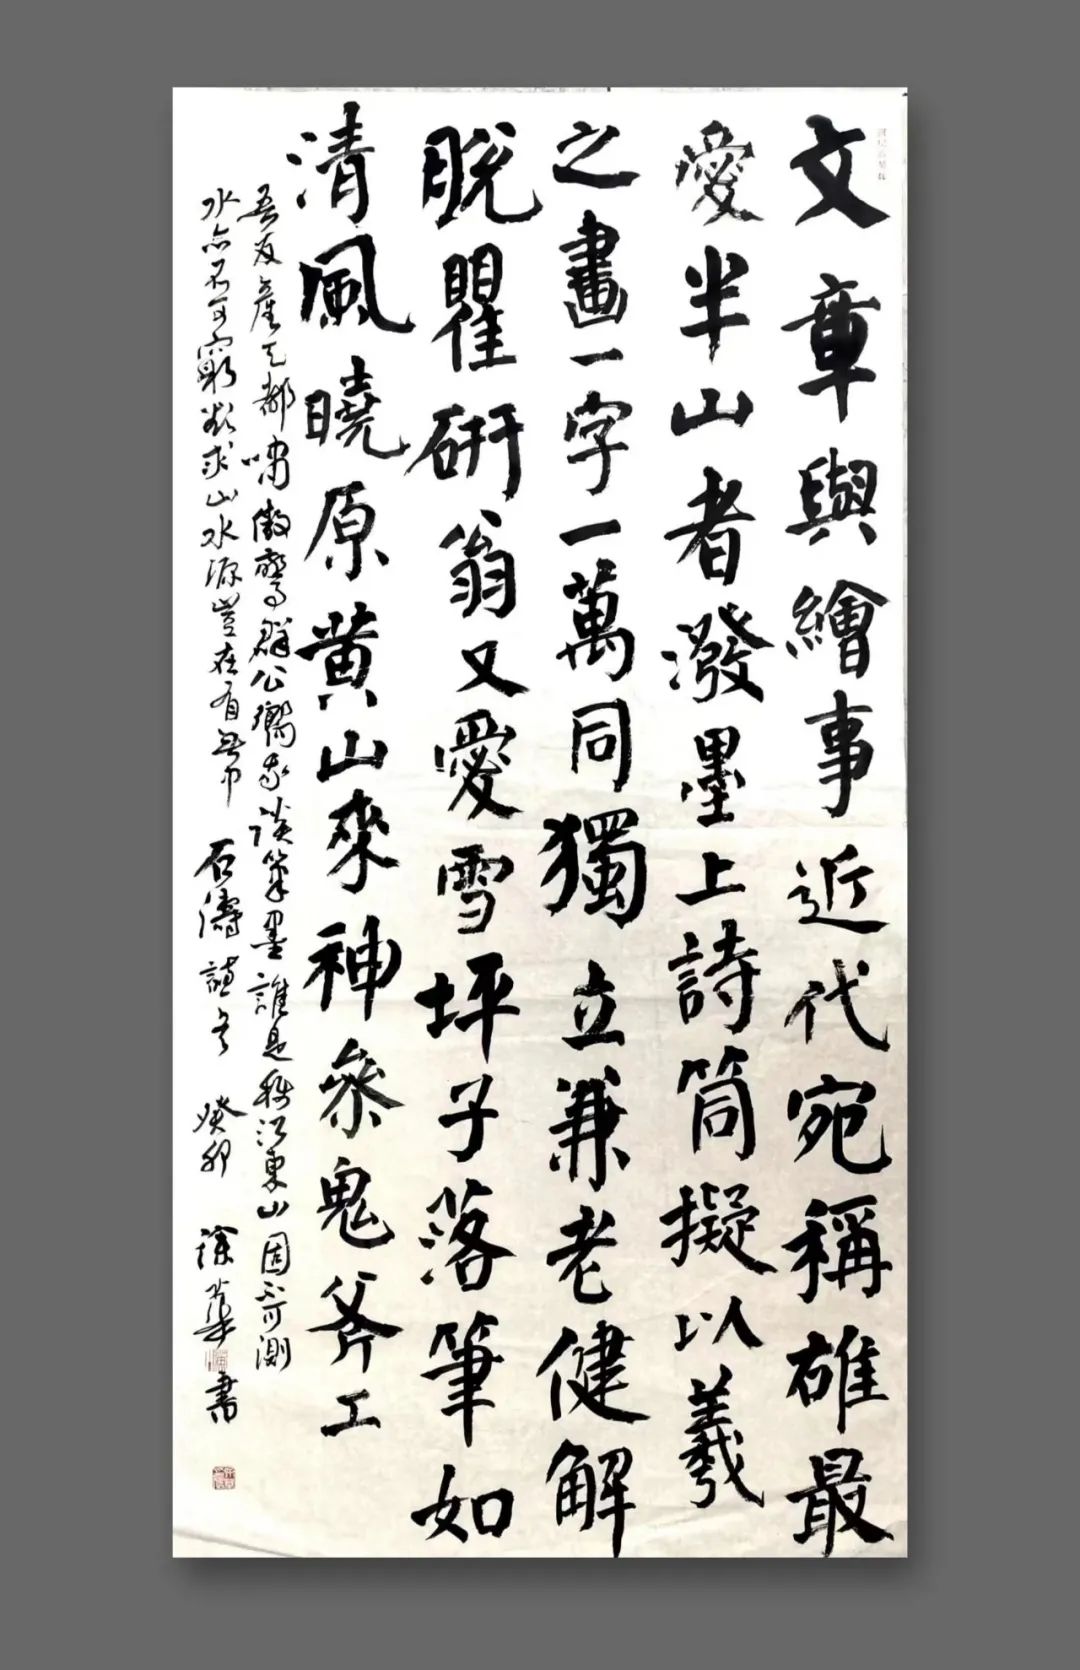 文章與繪事近代宛稱雄最
愛半山者潑墨上詩筒擬以羲
之畫一字一萬同獨立兼老健解
脫瞿研翁又愛雪坪子落筆如
清風曉原黄山來神参鬼斧工
吾友産天都嘯傲驚群公鄉家談筆墨誰是稱江東山固不可測
水亦不可窮欲求山水源豈在有無中 石濤詩句 癸卯 徐華書